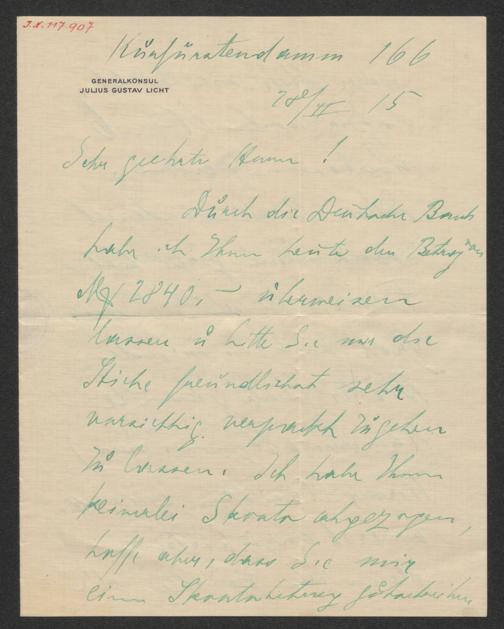 I.N. 117.907
Kurfürstendamm 166
GENERALKONSUL
JULJUS GUSTAV LICHT
28/II 15
Sehr geehrte Herren!
Durch die Deutsche Bank
habe ich Ihnen heute den Betrag von
M 2840,— überweisen
lassen u bitte Sie mir die
Stiche freundlichst sehr
vorsichtig verpackt zugehen
zu lassen. Ich habe Ihnen
keinerlei Skonto abgezogen,
hoffe aber, dass Sie mir
einen Skontobetrag gutschreiben